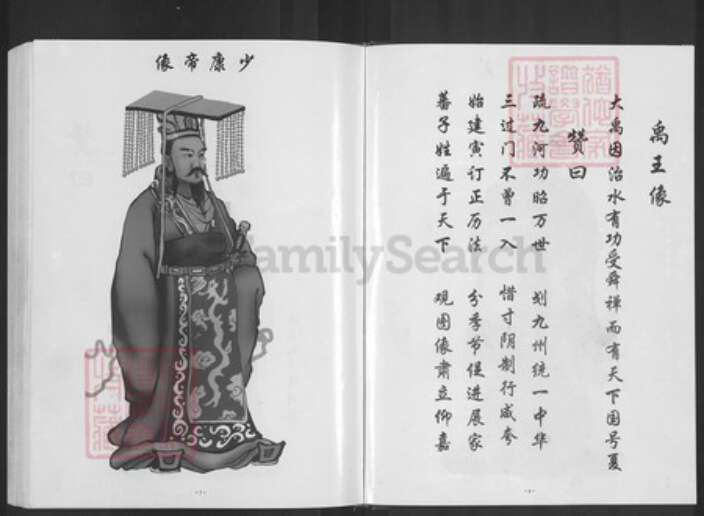 禹王像
大禹因治水有功受舜禅而有天下国号夏
赞曰
疏九河功昭万世 划九州统一中华
三过门不曾一入 惜寸阴制行咸夸
始建寅订正历法 分季节促进家
蕃子姓遍于天下 观图像肃立仰嘉
猶他家譜學會收藏
少康帝像
FamilySearch